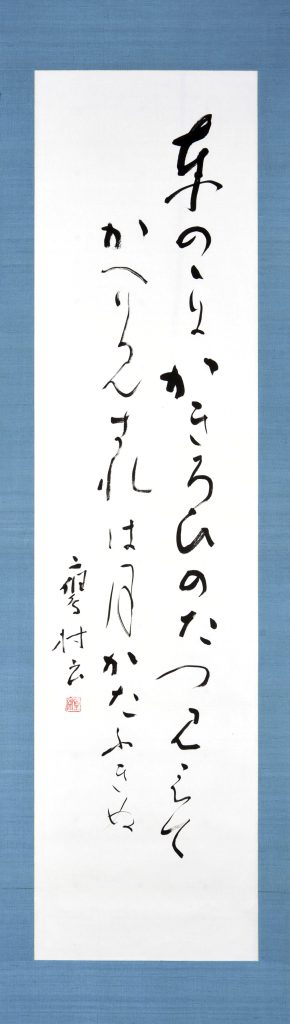 東のゝにかきろひのたつみえて
かへりみすれは月かたふきぬ
村